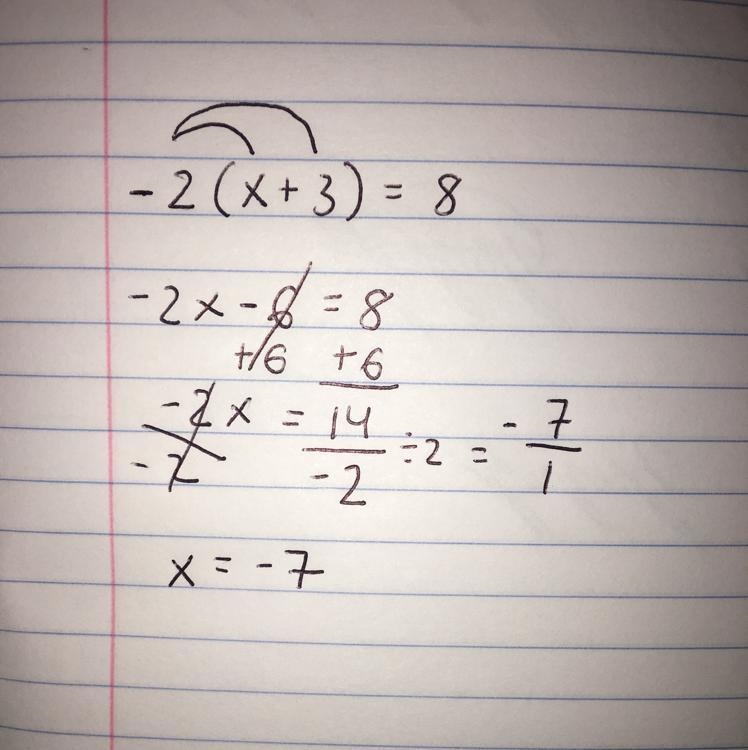 -2(x+3) = 8
-2x - 6 = 8
+6 +6
-2x = 14
-2 -2 ÷2 = -7/1
x = -7